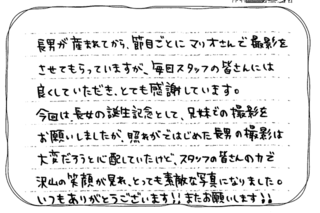 長男が産まれてから、節目ごとにマリオさんで撮影を
させてもらっていますが、毎回スタッフの皆さんには
良くしていただき、とても感謝しています。
今回は長女の誕生記念として、兄妹での撮影を
お願いしましたが、照れがではじめた長男の撮影は
大変だろうと心配していたけど、スタッフの皆さんの力で
沢山の笑顔が見れ、とっても素敵な写真になりました。
いつもありがとうございます!!またお願いします!!